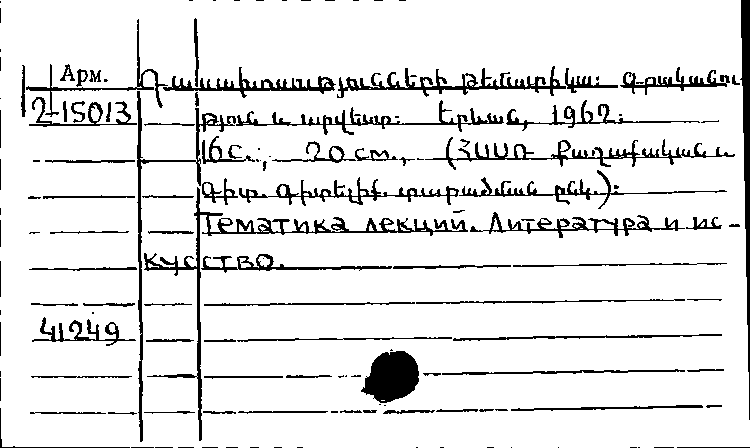 Арм.
Դասախոսությունների թեմատիկա: Գրականու
2-15013
թյուն և արվեստ: Երևան, 1962:
16 с., 20 см., (ՀՍՍՌ Քաղաքական և
գիտ. գիտելիք. տարածման ընկ.):
Тематика лекций. Литература и ис-
кусство.
41249